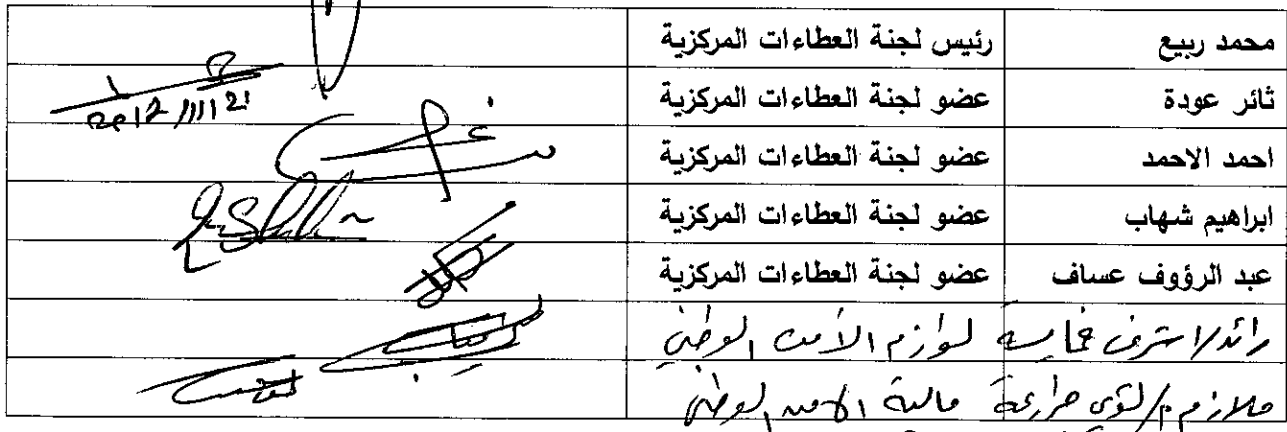 محمد ربيع رئيس لجنة العطاءات المركزية
ثائر عودة عضو لجنة العطاءات المركزية 2012/11/21
احمد الاحمد عضو لجنة العطاءات المركزية
ابراهيم شهاب عضو لجنة العطاءات المركزية
عبد الرؤوف عساف عضو لجنة العطاءات المركزية
رائد/ اشرف لوازم الأمن الوطني
ملازم مالية الامن الوطني